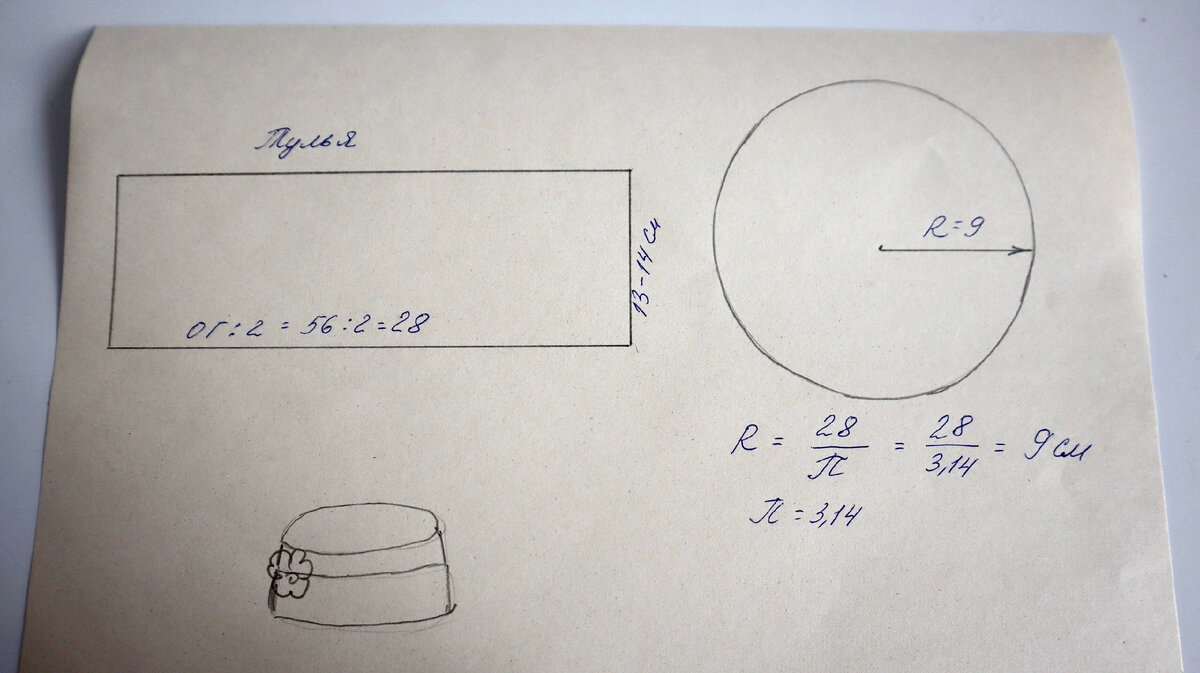 Тулья
ог:2 = 56:2=28
13-14 см
R=9
R = 28/П = 28/3,14 = 9 см
П = 3,14